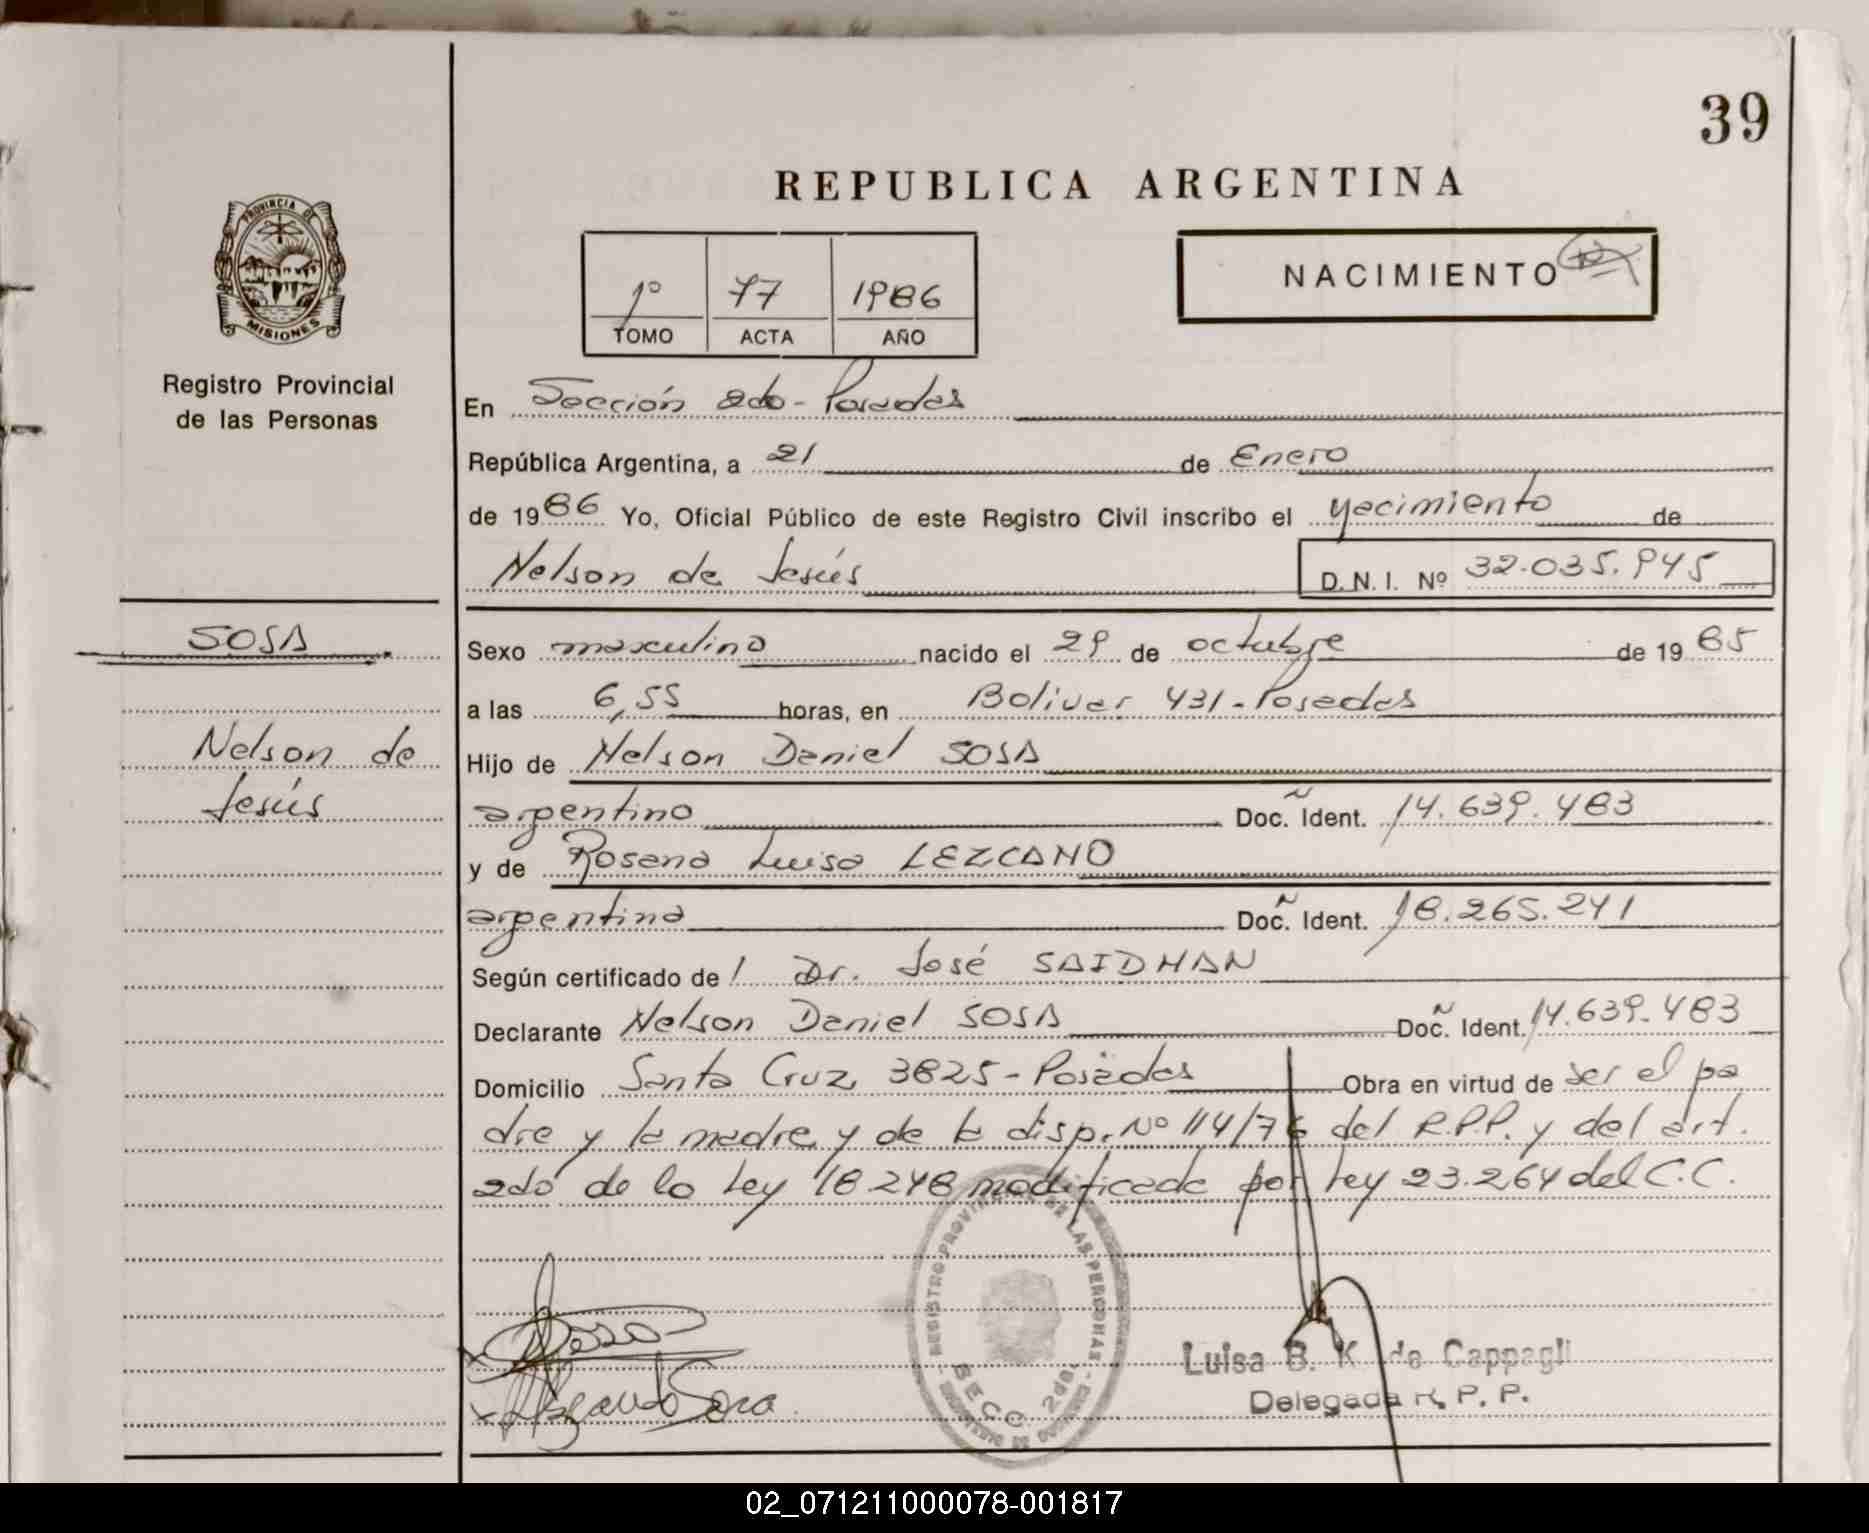 39
REPUBLICA ARGENTINA
PROVINCIA DE
MISIONES
Registro Provincial
de las Personas
1º 77 1986
TOMO ACTA AÑO
NACIMIENTO
En Sección 2do - Posadas
República Argentina, a 21 de Enero
de 1986 Yo, Oficial Público de este Registro Civil inscribo el nacimiento de
Nelson de Jesús D.N.I. Nº 32.035.945
SOSA
Nelson de
Jesús
Sexo masculino nacido el 29 de octubre de 1985
a las 6,55 horas, en Bolivar 431 - Posadas
Hijo de Nelson Daniel SOSA
argentino Doc. Ident. 14.639.483
y de Rosana Luisa LEZCANO
argentina Doc. Ident. 18.265.241
Según certificado de l Dr. José SAIDMAN
Declarante Nelson Daniel SOSA Doc. Ident. 14.639.483
Domicilio Santa Cruz 3825 - Posadas Obra en virtud de ser el pa
dre y la madre y de la disp. Nº 114/76 del R.P.P. y del art.
2do de la Ley 18.248 modificada por Ley 23.264 del C.C.
REGISTRO PROVINCIAL DE LAS PERSONAS
SECC. 2da.
Luisa B. K. de Cappagli
Delegada R. P. P.
02_071211000078-001817